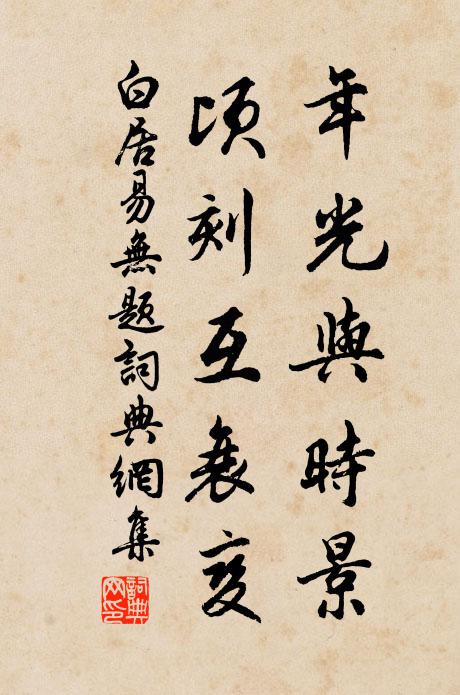 年光與時景
頃刻互衰變
白居易無題詞典網集
詞典网印